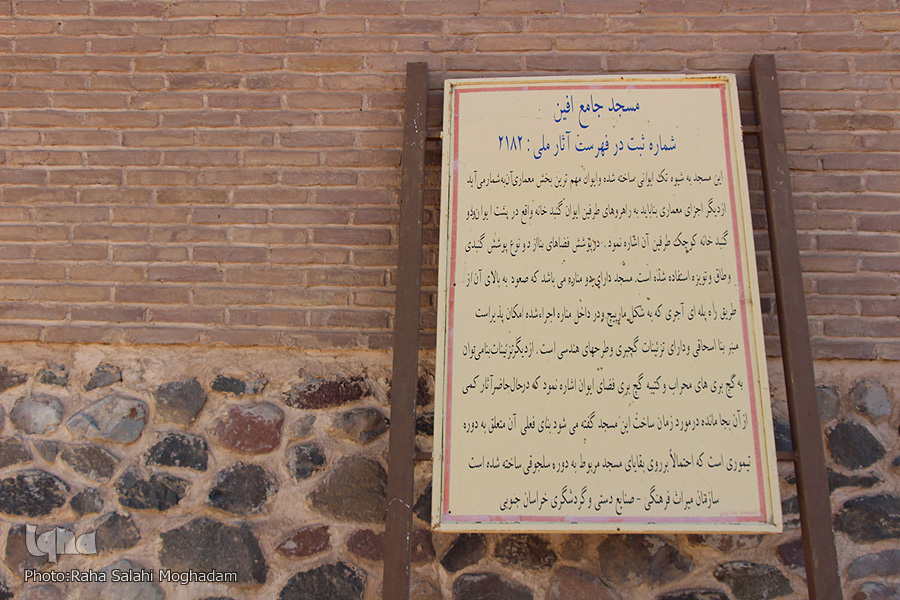 مسجد جامع افین
شماره ثبت در فهرست آثار ملی : ۲۱۸۲
این مسجد به شیوه تک ایوانی ساخته شده وایوان مهم ترین بخش معماری آن به شمار می آید
ازدیگر اجزای معماری بنا باید به راهروهای طرفین ایوان گنبد خانه واقع در پشت ایوان ودو
گنبد خانه کوچک طرفین آن اشاره نمود . درپوشش فضاهای بنا از دو نوع پوشش گنبدی
وطاق و تویزه استفاده شده است. مسجد دارای دو مناره می باشد که صعود به بالای آن از
طریق راه پله ای آجری که به شکل مارپیچ ودر داخل مناره اجرا شده امکان پذیر است
منبر بنا اسحاقی ودارای تزئینات گچبری وطرحهای هندسی است . ازدیگر تزئینات بنا می توان
به گچ بری های محراب وکتیبه گچ بری فضای ایوان اشاره نمود که درحال حاضر آثار کمی
از آن بجا مانده درمورد زمان ساخت این مسجد گفته می شود بنای فعلی آن متعلق به دوره
تیموری است که احتمالاً برروی بقایای مسجد مربوط به دوره سلجوقی ساخته شده است
سازمان میراث فرهنگی - صنایع دستی وگردشگری خراسان جنوبی
iqna
Photo:Raha Salahi Moghadam